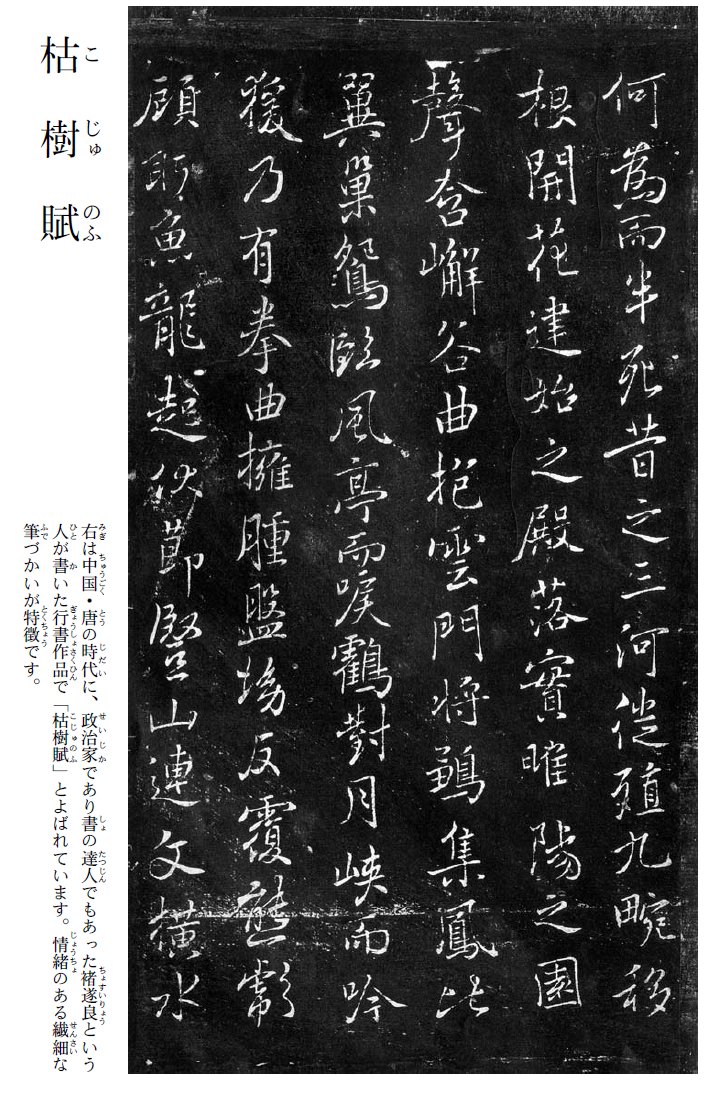 何為而半死昔之三河徙殖九畹移
根開花建始之殿落實睢陽之園
聲含嶰谷曲抱雲門将鶵集鳳比
翼巢鴛臨風亭而唳鶴對月峽而吟
猨乃有拳曲擁腫盤坳反覆熊彪
顧盼魚龍起伏節竪山連文横水
こじゅのふ
枯樹賦
右は中国・唐の時代に、政治家であり書の達人でもあった褚遂良という
人が書いた行書作品で「枯樹賦」とよばれています。情緒のある繊細な
筆づかいが特徴です。